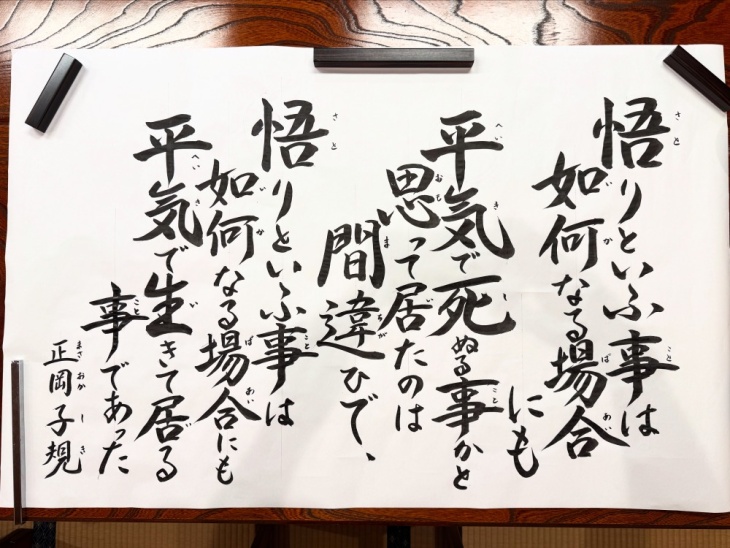 悟りといふ事は
如何なる場合
にも
平気で死ぬる事かと
思って居たのは
間違ひで、
悟りといふ事は
如何なる場合にも
平気で生きて居る
事であった
正岡子規